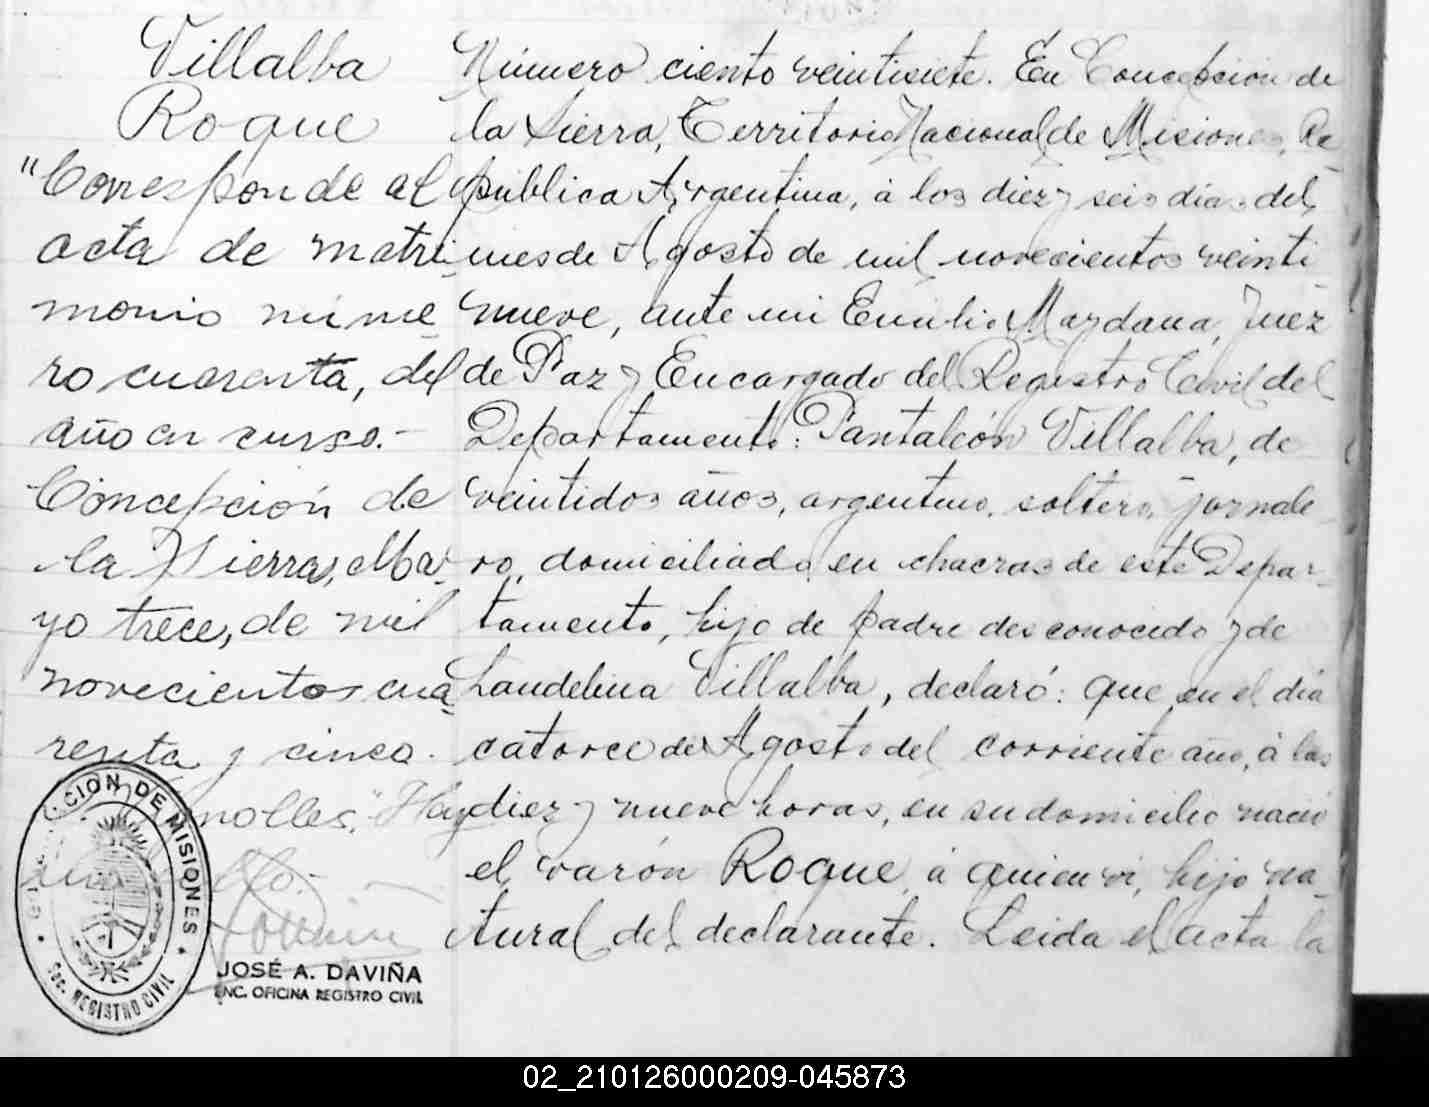 Villalba
Roque
"Corresponde al
acta de matri
monio núme
ro cuarenta, del
año en curso.-
Concepción de
la Sierra, Ma-
yo trece, de mil
novecientos cua
renta y cinco.
Hay
JOSÉ A. DAVIÑA
ENC. OFICINA REGISTRO CIVIL
CION DE MISIONES
REGISTRO CIVIL
Número ciento veintisiete. En Concepcion de
la Sierra, Territorio Nacional de Misiones, Re-
pública Argentina, á los diez y seis dias del
mes de Agosto de mil novecientos veinti
nueve, ante mi Emilio Maydana, Juez
de Paz y Encargado del Registro Civil del
Departamento: Pantaleón Villalba, de
veintidos años, argentino, soltero, jornale
ro, domiciliado en chacras de este Depar-
tamento, hijo de padre desconocido y de
Laudelina Villalba, declaró: que en el día
catorce de Agosto del corriente año, á las
diez y nueve horas, en su domicilio nació
el varón Roque, á quien vi, hijo na-
tural del declarante. Leida el acta la
02_210126000209-045873